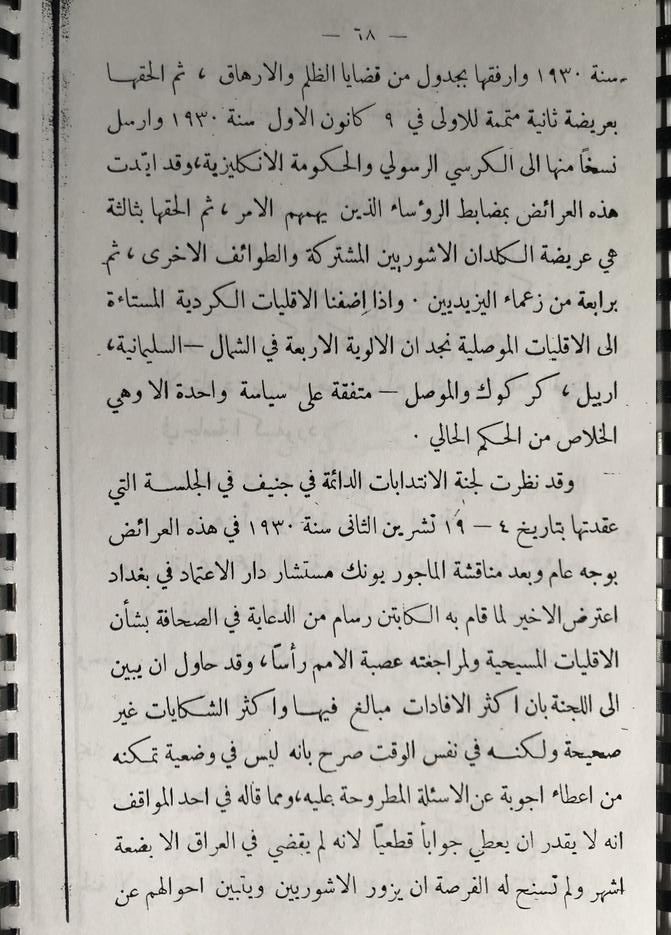 — ٦٨ —
سنة ١٩٣٠ وارفقها بجدول من قضايا الظلم والارهاق ، ثم الحقها
بعريضة ثانية متممة للاولى في ٩ كانون الاول سنة ١٩٣٠ وارسل
نسخاً منها الى الكرسي الرسولي والحكومة الانكليزية،وقد ايدت
هذه العرائض بمضابط الروءساء الذين يهمهم الامر ، ثم الحقها بثالثة
هي عريضة الكلدان الاشوريين المشتركة والطوائف الاخرى ، ثم
برابعة من زعماء اليزيديين . واذا إضفنا الاقليات الكردية المستاءة
الى الاقليات الموصلية نجد ان الالوية الاربعة في الشمال —السليمانية،
اربيل ، كركوك والموصل — متفقة على سياسة واحدة الا وهي
الخلاص من الحكم الحالي .
وقد نظرت لجنة الانتدابات الدائمة في جنيف في الجلسة التي
عقدتها بتاريخ ٤ — ١٩ تشرين الثانى سنة ١٩٣٠ في هذه العرائض
بوجه عام وبعد مناقشة الماجور يونك مستشار دار الاعتماد في بغداد
اعترض الاخير لما قام به الكابتن رسام من الدعاية في الصحافة بشأن
الاقليات المسيحية ولمراجعته عصبة الامم رأساً، وقد حاول ان يبين
الى اللجنة بان اكثر الافادات مبالغ فيها واكثر الشكايات غير
صحيحة ولكنه في نفس الوقت صرح بانه ليس في وضعية تمكنه
من اعطاء اجوبة عن الاسئلة المطروحة عليه،ومما قاله في احد المواقف
انه لا يقدر ان يعطي جواباً قطعياً لانه لم يقضي في العراق الا بضعة
اشهر ولم تسنح له الفرصة ان يزور الاشوريين ويتبين احوالهم عن